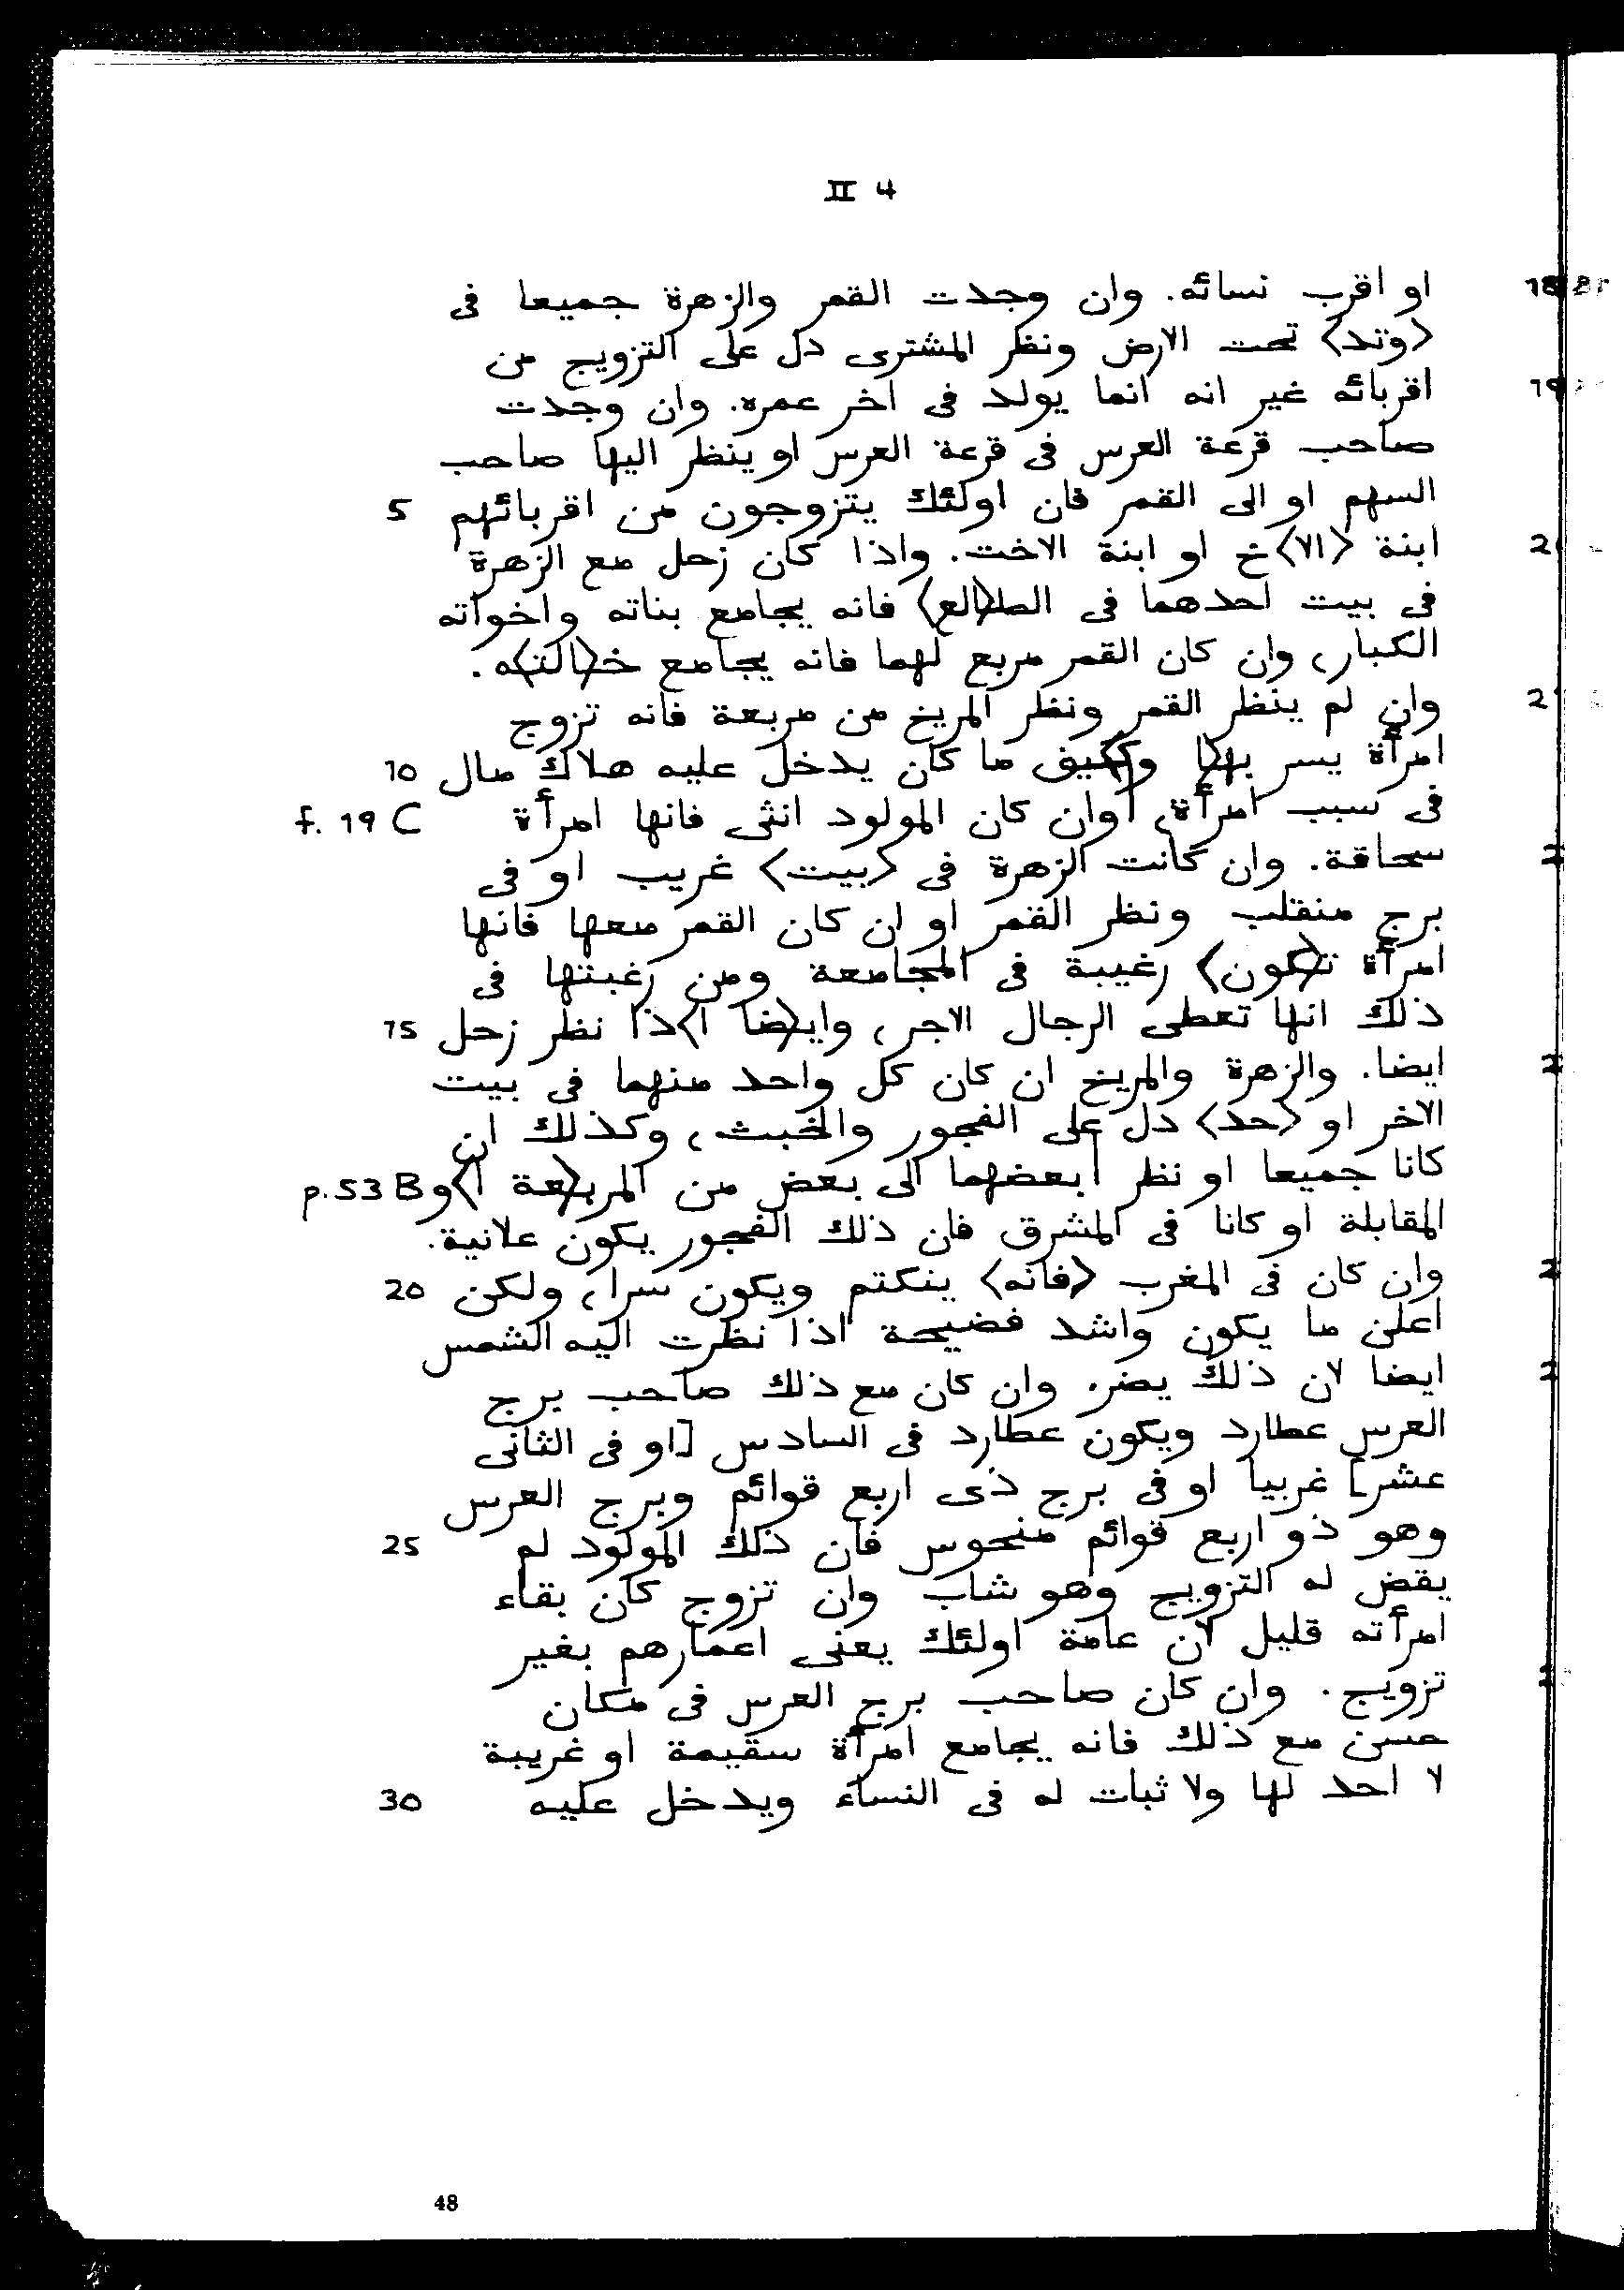 II 4
18 او اقرب نسائه. وان وجدت القمر والزهرة جميعا فى
<وتد> تحت الارض ونظر المشترى دل على التزويج من
19 اقربائه غير انه انما يولد فى اخر عمره. وان وجدت
صاحب قرعة العرس فى قرعة العرس او ينظر اليها صاحب
السهم او الى القمر فان اولئك يتزوجون من اقربائهم 5
2 ابنة <الا>خ او ابنة الاخت. واذا كان زحل مع الزهرة
فى بيت احدهما فى الط<الع> فانه يجامع بناته واخواته
الكبار، وان كان القمر مربع لهما فانه يجامع خ<الت>ه.
2 وان لم ينظر القمر ونظر المريخ من مربعة فانه تزوج
امرأة يسر به<ا> و<ك>كيف ما كان يدخل عليه هلاك مال 10
فى سبب امرأة، |وان كان المولود انثى فانها امرأة f. 19 C
2 سحاقة. وان كانت الزهرة فى <بيت> غريب او فى
برج منقلب ونظر القمر او ان كان القمر معها فانها
امرأة ت<كون> رغيبة فى المجامعة ومن رغبتها فى
ذلك انها تعطى الرجال الاجر، واي<ضا ا>ذا نظر زحل 15
2 ايضا. والزهرة والمريخ ان كان كل واحد منهما فى بيت
الاخر او <حد> دل على الفجور والخبث، وكذلك ان
كانا جميعا او نظر |بعضهما الى بعض من المرب<عة ا>و p.53 B
المقابلة او كانا فى المشرق فان ذلك الفجور يكون علانية.
2 وان كان فى المغرب <فانه> ينكتم ويكون سرا، ولكن 20
اعلن ما يكون واشد فضيحة اذا نظرت اليه الشمس
2 ايضا لان ذلك يضر. وان كان مع ذلك صاحب برج
العرس عطارد ويكون عطارد فى السادس [او فى الثانى
عشر] غربيا او فى برج ذى اربع قوائم وبرج العرس
وهو ذو اربع قوائم منحوس فان ذلك المولود لم 25
يقض له التزويج وهو شاب وان تزوج كان بقاء
امرأته قليل لان عامة اولئك يعنى اعمارهم بغير
2 تزويج. وان كان صاحب برج العرس فى مكان
حسن مع ذلك فانه يجامع امرأة سقيمة او غريبة
لا احد لها ولا ثبات له فى النساء ويدخل عليه 30
48